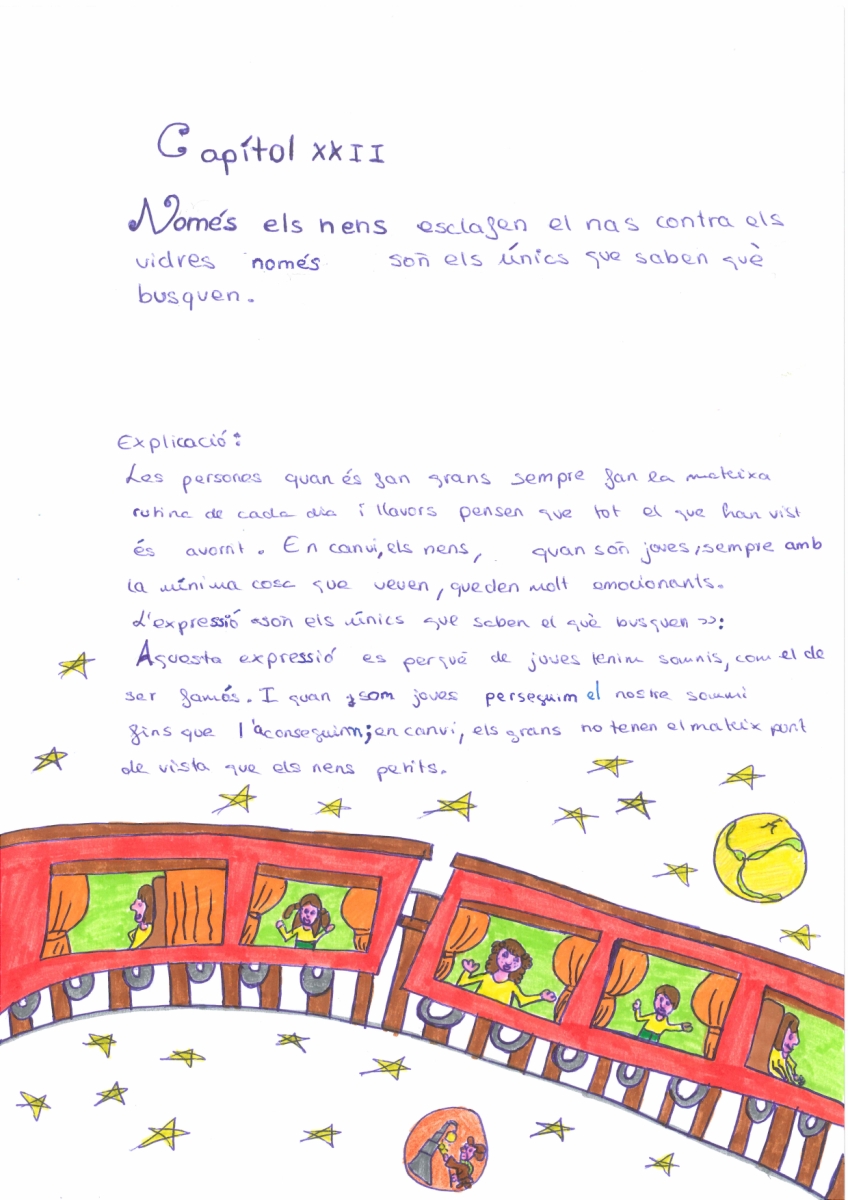 Capítol XXII
Només els nens esclafen el nas contra els
vidres només són els únics que saben què
busquen.
Explicació:
Les persones quan és fan grans sempre fan la mateixa
rutina de cada dia i llavors pensen que tot el que han vist
és avorrit. En canvi, els nens, quan són joves, sempre amb
la mínima cosa que veuen, queden molt emocionants.
L'expressió «són els únics que saben el què busquen»:
Aquesta expressió es perquè de joves tenim somnis, com el de
ser famós. I quan som joves perseguim el nostre somni
fins que l'aconseguim; en canvi, els grans no tenen el mateix punt
de vista que els nens petits.